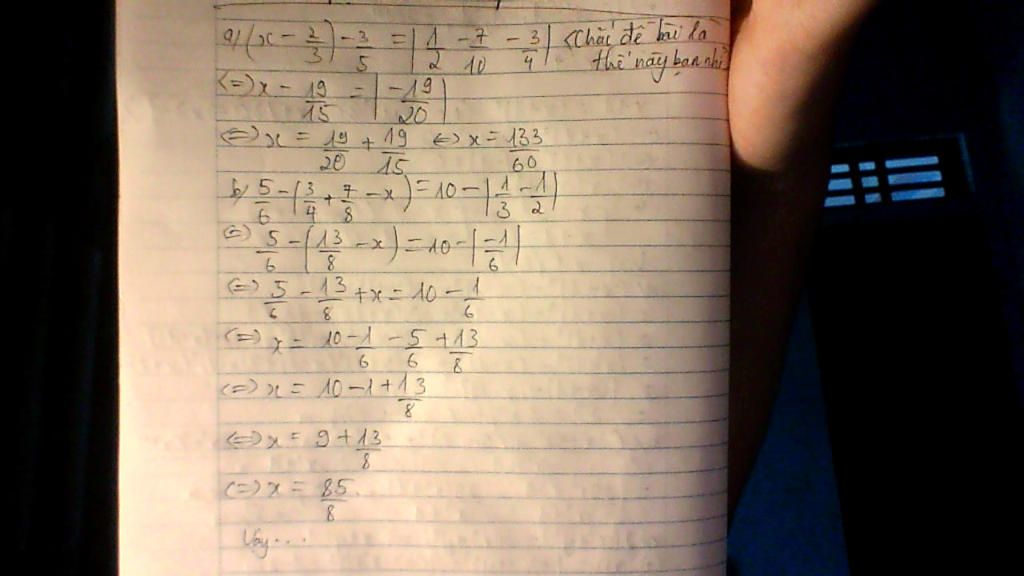 a) (x - 2/3) - 3/5 = |1/2 - 7/10 - 3/4| <Chắc đề bài là
thế này bạn nhỉ
<=> x - 19/15 = |-19/20|
<=> x = 19/20 + 19/15 <=> x = 133/60
b) 5/6 - (3/4 + 7/8 - x) = 10 - |1/3 - 1/2|
<=> 5/6 - (13/8 - x) = 10 - |-1/6|
<=> 5/6 - 13/8 + x = 10 - 1/6
<=> x = 10 - 1/6 - 5/6 + 13/8
<=> x = 10 - 1 + 13/8
<=> x = 9 + 13/8
<=> x = 85/8
Vậy...